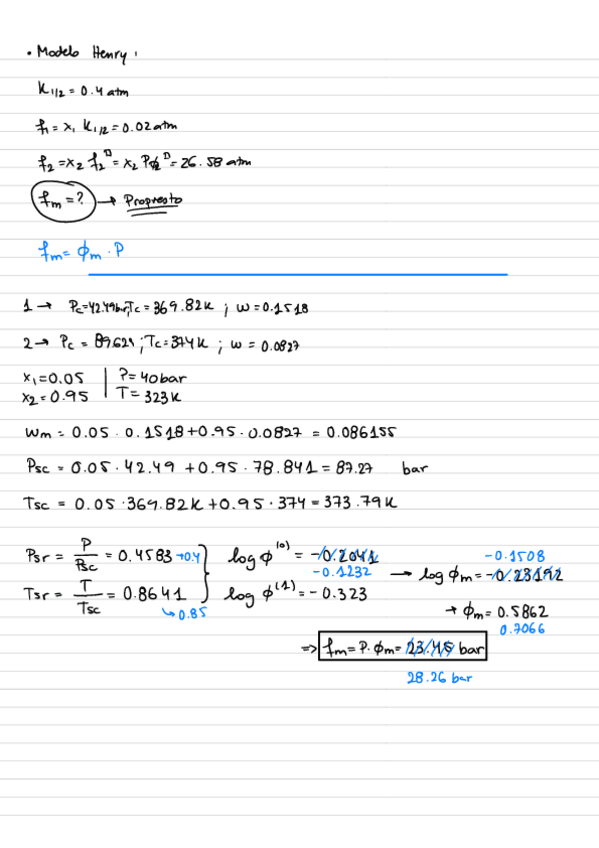 • Modelo Henry:
K1/2 = 0.4 atm
f1 = x1 K1/2 = 0.02 atm
f2 = x2 f2^□ = x2 Pϕ2^□ = 26.58 atm
fm = ? → Propuesto
fm = ϕm · P
1 → Pc = 42.49 bar; Tc = 369.82 K ; w = 0.1518
2 → Pc = 89.624 ; Tc = 374 K ; w = 0.0827
x1 = 0.05 | P = 40 bar
x2 = 0.95 | T = 323 K
wm = 0.05 · 0.1518 + 0.95 · 0.0827 = 0.086155
Psc = 0.05 · 42.49 + 0.95 · 78.841 = 87.27 bar
Tsc = 0.05 · 369.82 K + 0.95 · 374 = 373.79 K
Psr = P/Psc = 0.4583 → 0.4 } log ϕ^(0) = -0.2041 -0.1232 → log ϕm = -0.23192 -0.1508
Tsr = T/Tsc = 0.8641 → 0.85 log ϕ^(1) = -0.323 → ϕm = 0.5862 0.7066
⇒ fm = P · ϕm = 23.45 bar
28.26 bar